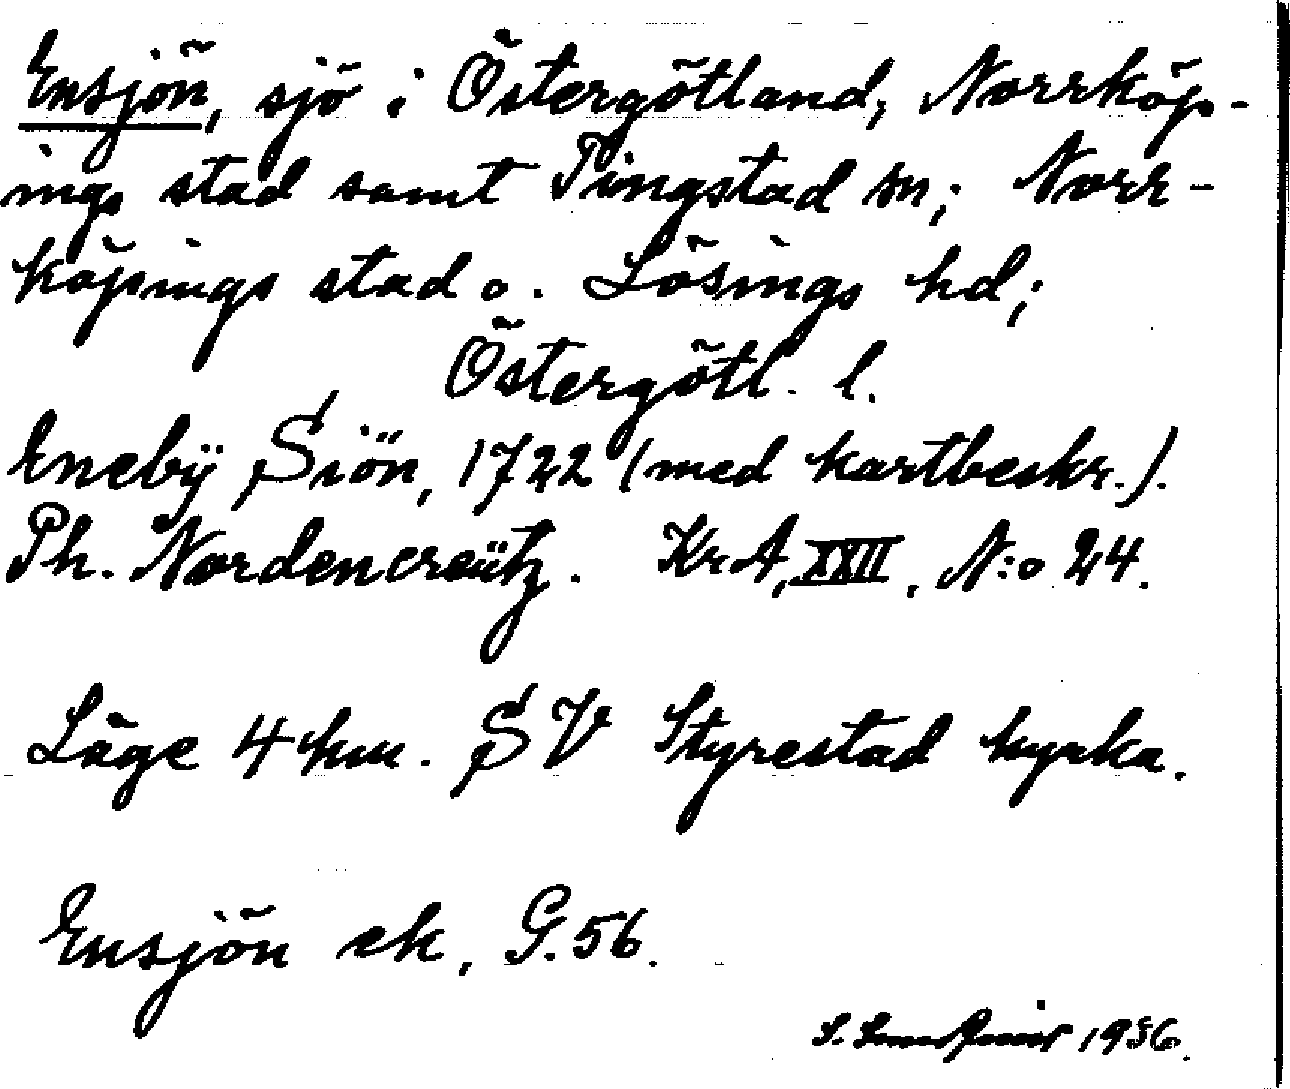 Ensjön, sjö i Östergötland, Norrköp-
ings stad samt Tingstad sn; Norr-
köpings stad o. Lösings hd;
Östergötl. l.
Enebÿ Siön, 1722 (med kartbeskr.).
Ph. Nordencreütz. Kr.A, XXII, N:o 24.
Läge 4 km. SV Styrestad kyrka.
Ensjön ek, G. 56.
S. 1936.